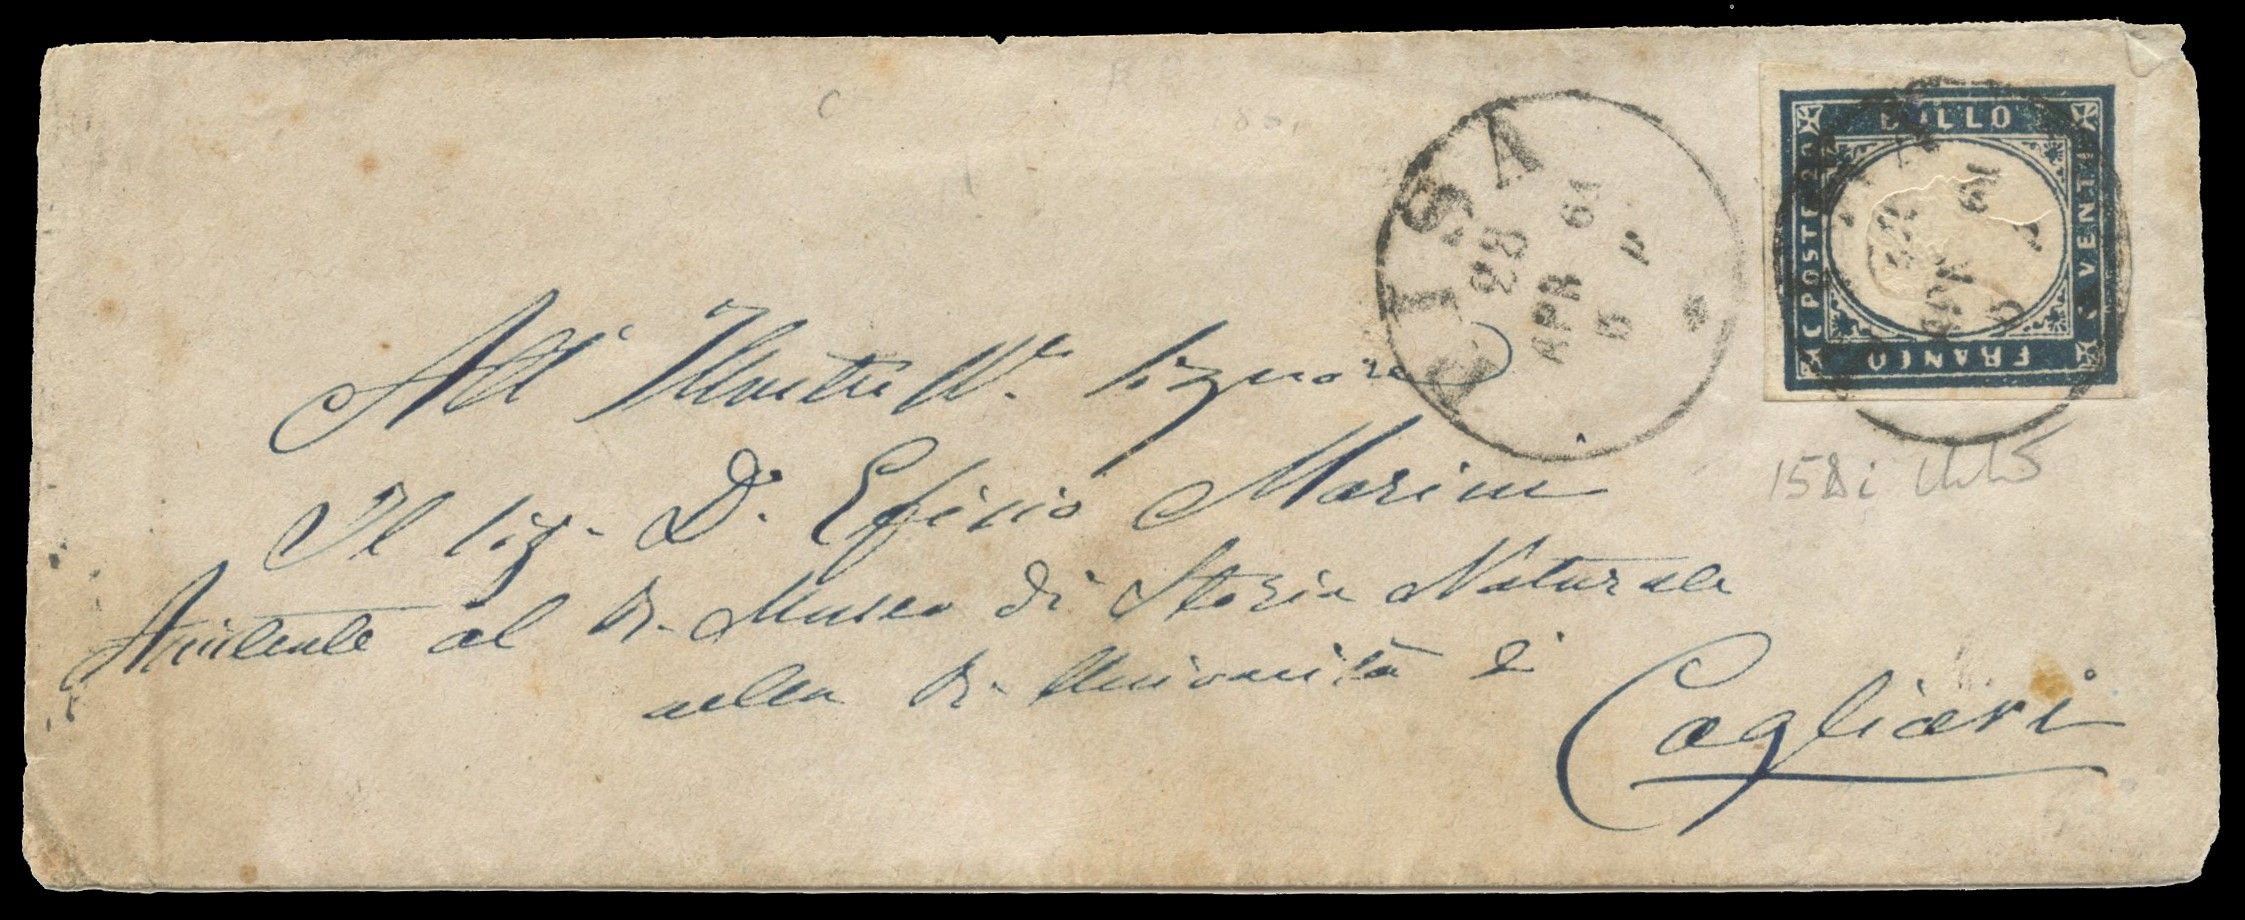 PISA
28
APR 61
5 P
BOLLO
C POSTE 20
C VENTI
FRANCO
All' Illustre W.e Signore
Il Sig. D. Efisio Marini
Assistente al R. Museo di Storia Naturale
nella R. Università di
Cagliari